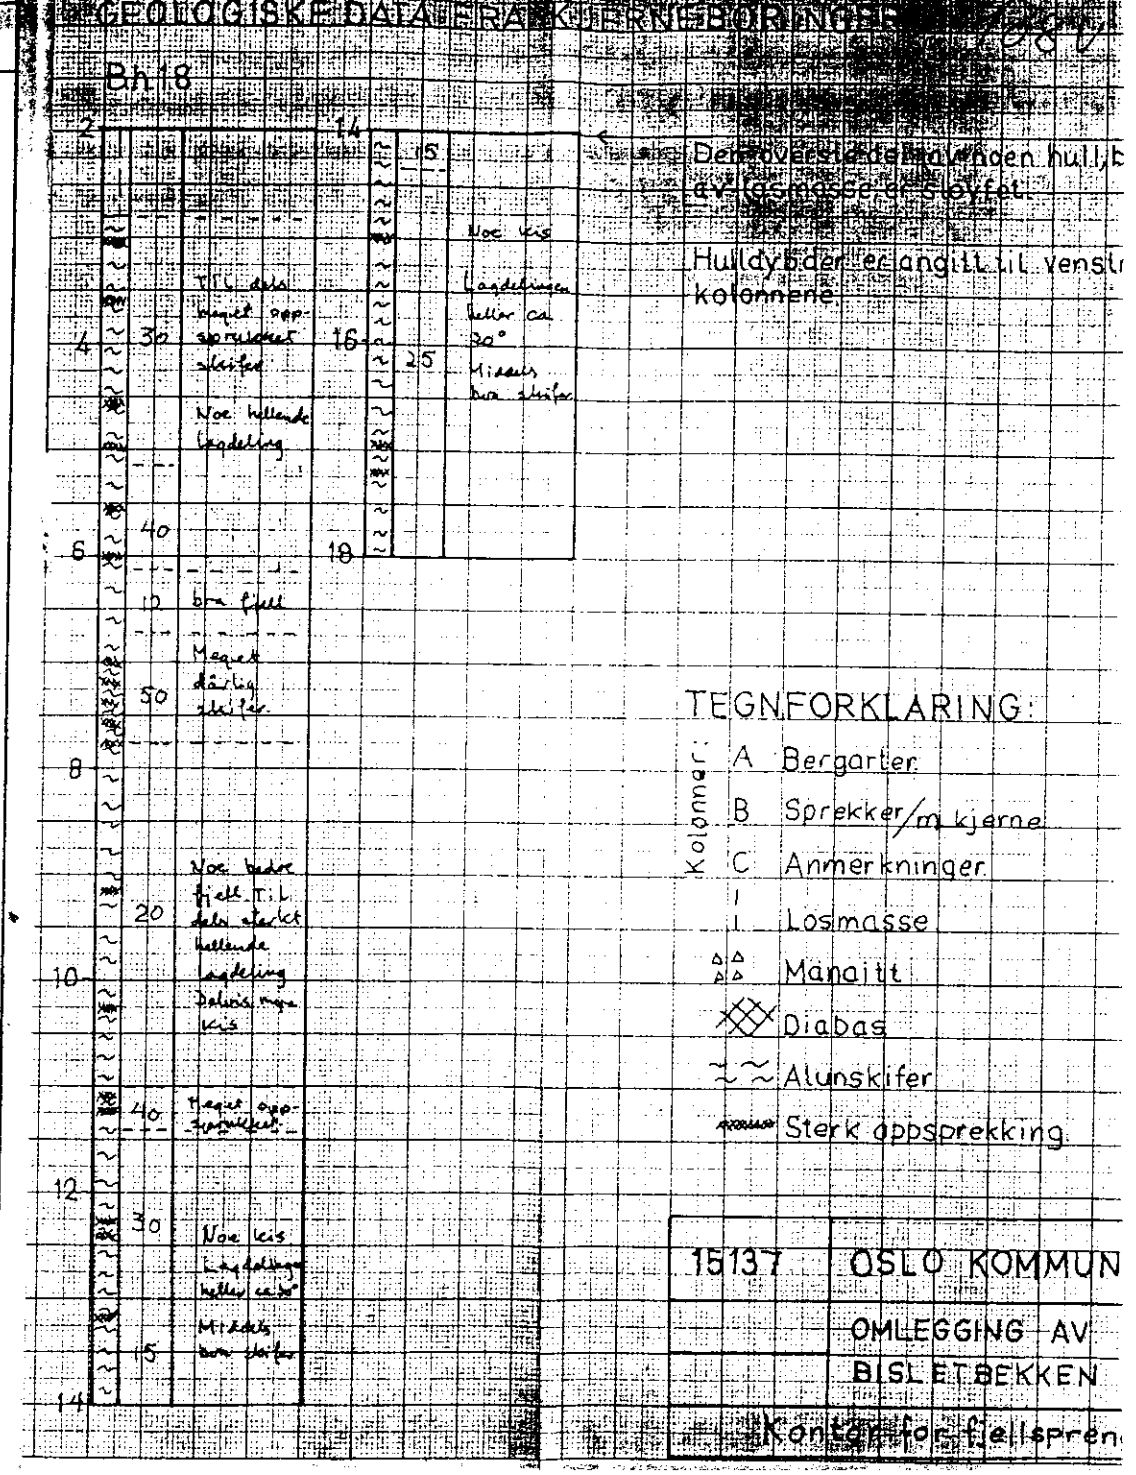 GEOLOGISKE DATA FRA KJERNEBORINGER
Bh 18
2
Til dels
meget opp-
sprukket
skifer
4
30
Noe hellende
lagdeling
40
6
10
bra fjell
Meget
dårlig
skifer.
50
8
Noe bedre
fjell. Til
dels sterkt
hellende
lagdeling
Delvis mye
kis
20
10
40
Meget opp-
sprukket
12
30
Noe kis
Lagdelingen
heller ca 30°
Middels
bra skifer
15
14
14
15
Noe kis
Lagdelingen
heller ca
30°
Middels
bra skifer
16
25
18
Den øverste del av noen hull, b
av løsmasse er sløyfet.
Hulldybder er angitt til venstr
kolonnene.
TEGNFORKLARING:
Kolonner:
A Bergarter
B Sprekker/m kjerne
C Anmerkninger
Løsmasse
Mænaitt
Diabas
Alunskifer
Sterk oppsprekking
15137
OSLO KOMMUN
OMLEGGING AV
BISLETBEKKEN
Kontor for fjellspreng